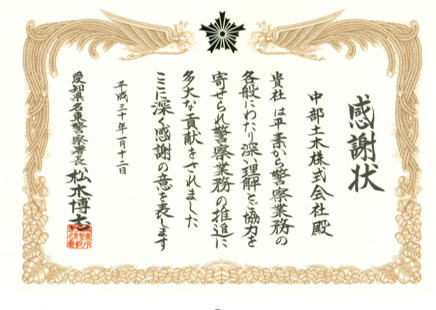 感謝状
中部土木株式会社殿
貴社は平素から警察業務の
各般にわたり深い理解とご協力を
寄せられ警察業務の推進に
多大な貢献をされました
ここに深く感謝の意を表します
平成三十年一月十二日
愛知県名東警察署長 松本博志